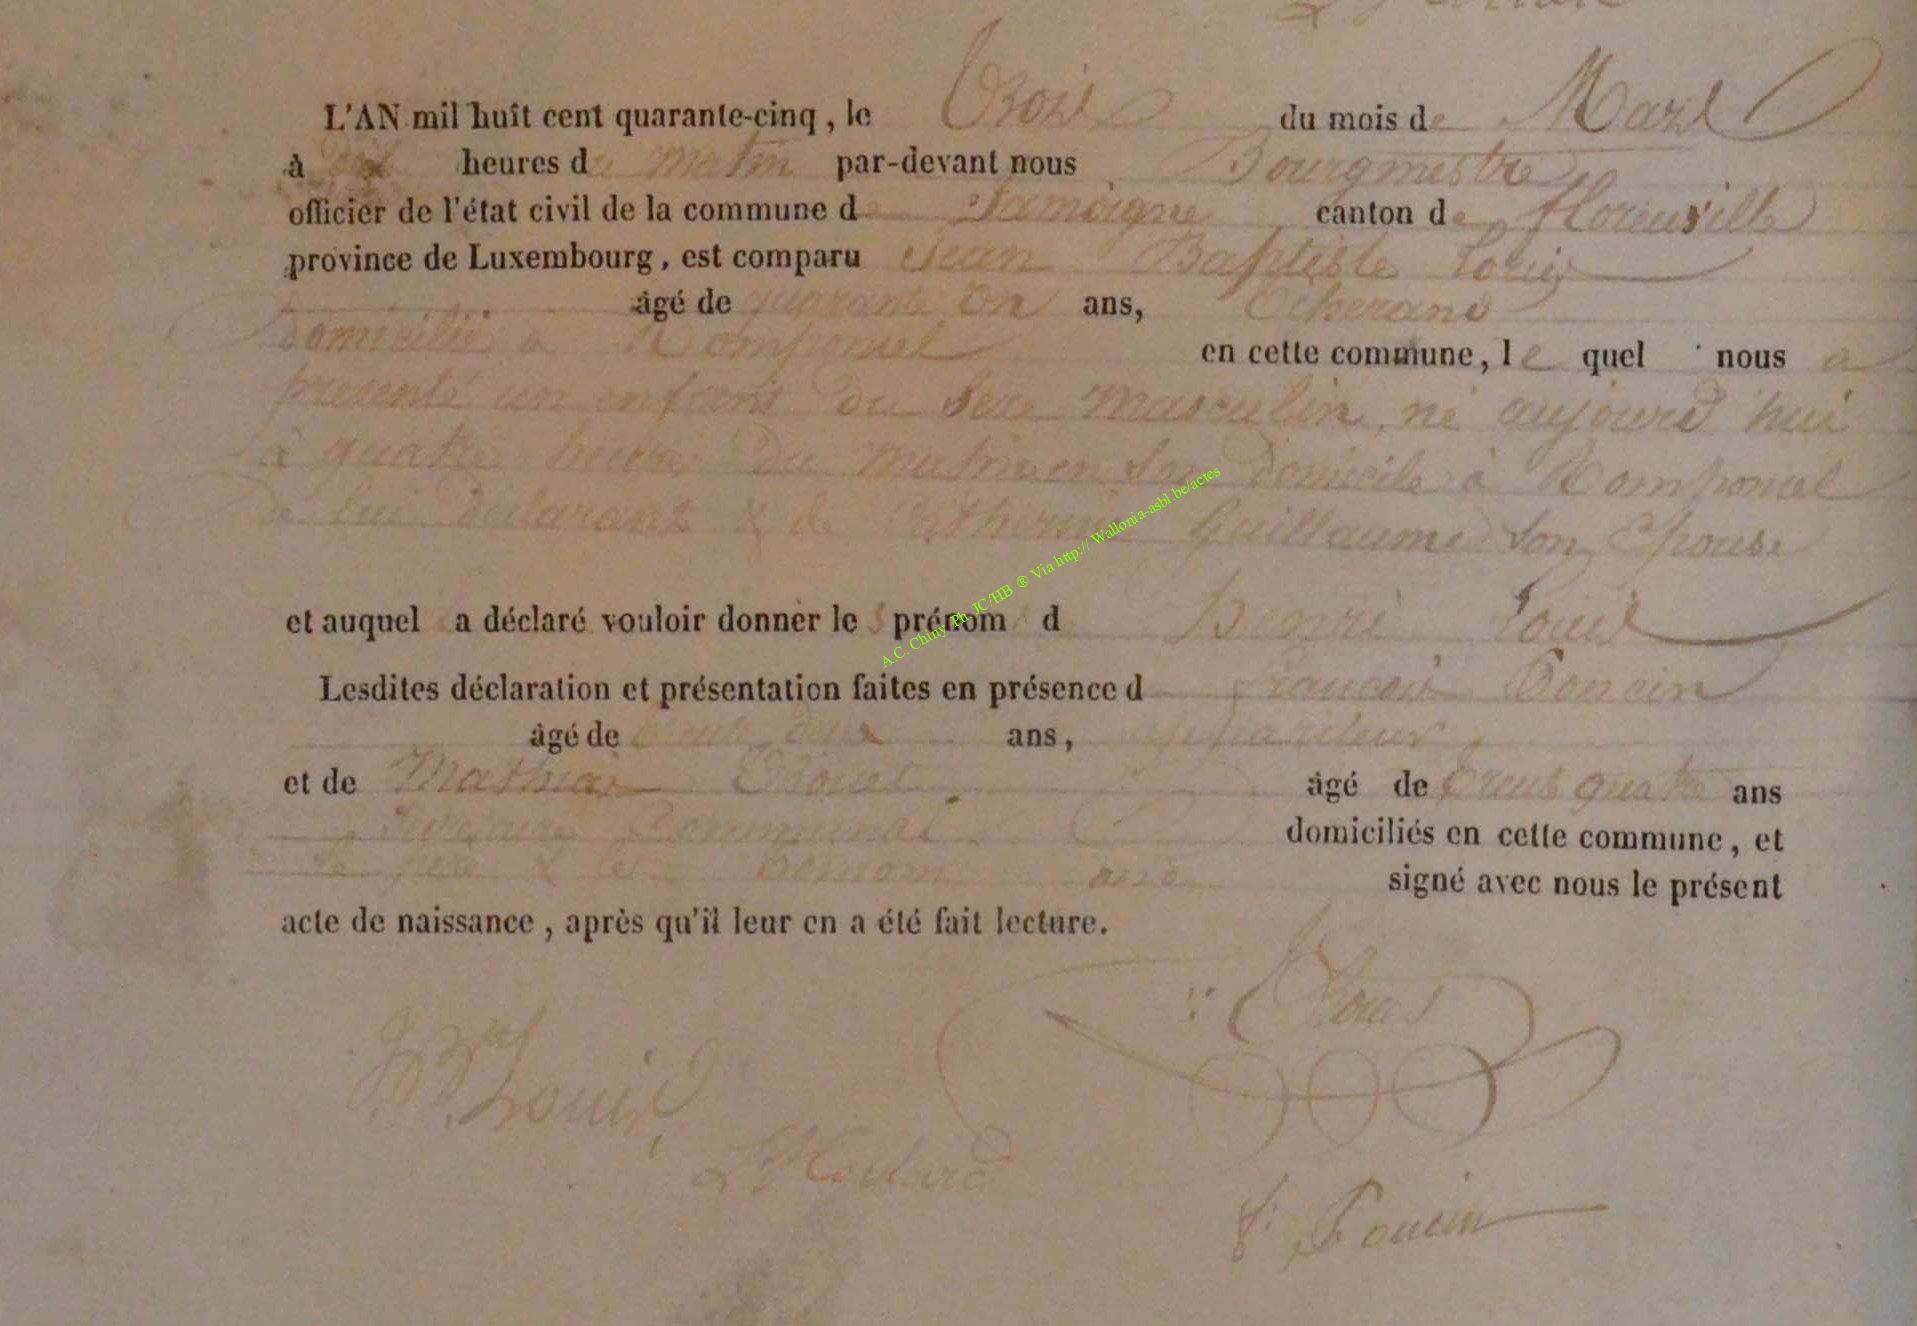 L'AN mil huit cent quarante-cinq, le Trois du mois de Mars
à dix heures du matin par-devant nous Bourgmestre
officier de l'état civil de la commune de Jamoigne canton de florenville
province de Luxembourg, est comparu Jean Baptiste Louis
âgé de quarante un ans,
domicilié à Romponcel en cette commune, le quel nous a
presenté un enfant du sexe masculin, né aujourd'hui
à quatre heures du matin en son domicile à Romponcel
de lui déclarant & de Guillaume son Epouse
et auquel a déclaré vouloir donner les prénoms d Henri Louis
Lesdites déclaration et présentation faites en présence d francois Poncin
âgé de deux ans,
et de Mathias âgé de trente quatre ans
Communal domiciliés en cette commune, et
le père & le témoin ont signé avec nous le présent
acte de naissance, après qu'il leur en a été fait lecture.
JBte Louis
f: Poncin
A.C. Chiny Ph. JC/HB ® Via http:// Wallonia-asbl.be/actes